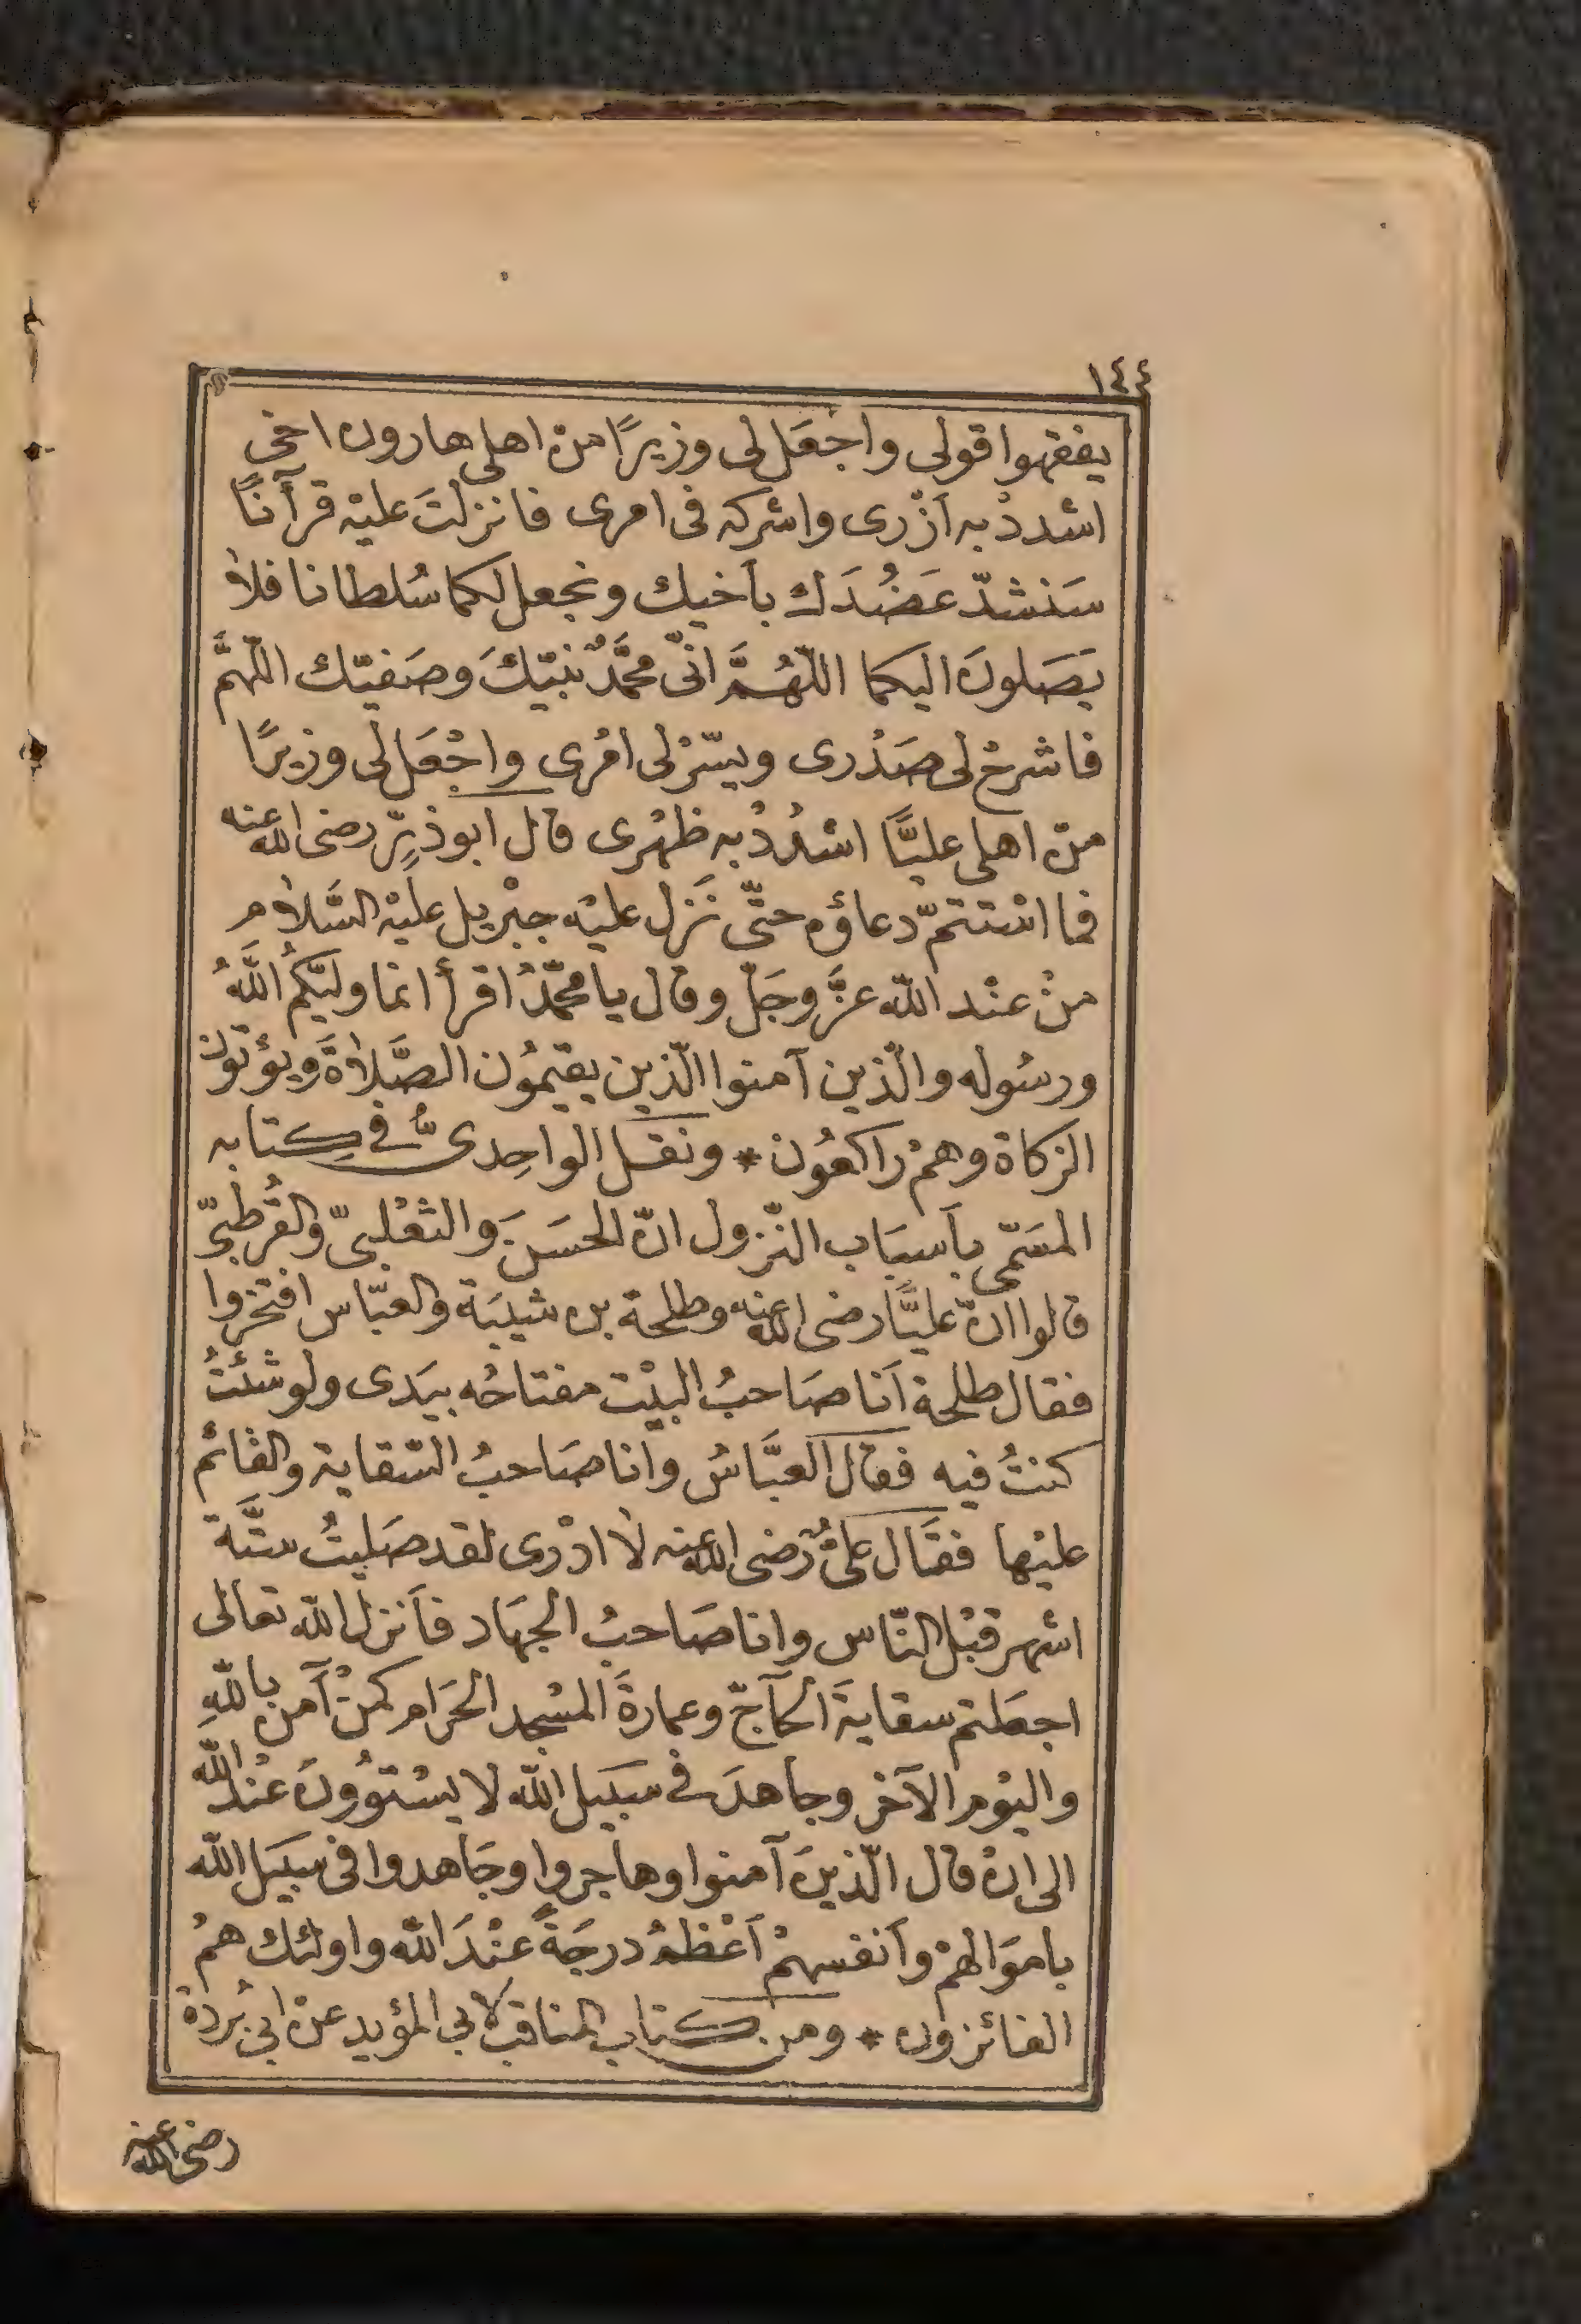 ١٤٤
يفقهوا قولى واجْعَل لى وزيرًا منْ اهلى هارون اخى
اشددْ به اَزْرى واشركه فى امرى فانزلتَ عليْه قرآنًا
سَنشدّ عَضُدَك بأخيك ونجعل لكما سُلطانا فلا
يَصَلونَ اليكما اللّهُمَّ انّى محمَّدٌ نبيّكَ وصَفيّك اللّهمَّ
فاشرحْ لى صَدْرى ويسّرْ لى امْرى واجْعَل لى وزيرًا
منْ اهلى عليًّا اشدُدْ به ظهْرى قال ابوذرٍّ رضى الله عنه
فما اسْتتمّ دعاؤه حتّى نَزل عليْه جبْريل عليْه السَّلام
منْ عنْد اللّه عزَّ وجَلّ وقال يا محمّدُ اقرأ انما وليّكمُ اللَّهُ
ورسُوله والّذين آمنوا الّذين يقيمُون الصَّلاةَ ويؤتون
الزكاة وهمْ راكعُون * ونقل الواحِدىُّ فى كِتابه
المسَمّى بأسبَاب النّزول انّ الحسَنَ والثعْلبىّ والقُرطُبىّ
قالوا انّ عليًّا رضى الله عنه وطلحة بن شيبَة والعبّاس افتخروا
فقال طلحة اَنا صَاحبُ البيْت مفتاحُه بيَدى ولو شئْتُ
كنتُ فيه فقال العبَّاسُ وانا صَاحبُ السّقاية والقائم
عليْها فقَال علىٌّ رضى الله عنه لا ادْرى لقد صَليتُ ستَّة
اشهر قبْل النّاس وانا صَاحبُ الجهَاد فاَنزل اللّه تعالى
اجعَلتم سقايةَ الحآجّ وعمارةَ المسْجد الحَرام كمنْ آمن باللّهِ
واليوْم الآخر وجاهدَ فى سبَيل اللّه لا يسْتوُونَ عنْد اللّه
الى انْ قال الّذينَ آمنوا وهاجروا وجَاهدوا فى سبيَل اللّه
باموَالهمْ واَنفسهمْ اَعْظمُ درجَةً عنْدَ اللّه واولئك همُ
الفائزون * ومن كتاب المناقب لابى المؤيد عنْ ابى بُردة
رضى الله عنه